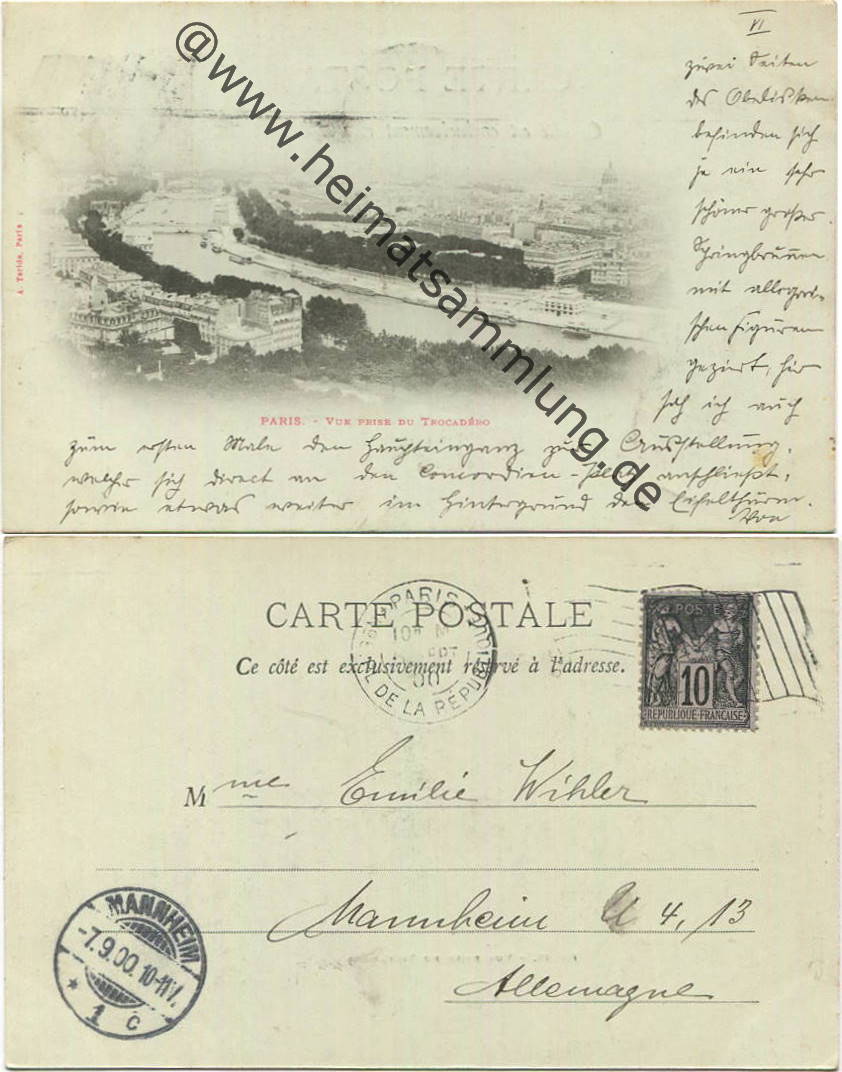 VI
zwei Seiten
des Obelisken
befinden sich
je ein sehr
schöner großer
Springbrunnen
mit allegori-
schen Figuren
geziert, hier
sah ich auch
zum ersten Male den Haupteingang zur Ausstellung,
welcher sich direct an den Concordien- anschließt,
sowie etwas weiter im Hintergrund den Eifelthurm.
Von
A. Taride, Paris
PARIS. - VUE PRISE DU TROCADÉRO
@www.heimatsammlung.de
CARTE POSTALE
Ce côté est exclusivement réservé à l'adresse.
PARIS
PL. DE LA RÉPUBLIQUE
POSTE
10
RÉPUBLIQUE FRANÇAISE
Mme Emilie Wihler
Mannheim U 4, 13
Allemagne
MANNHEIM
-7.9.00.10-11V.
* 1 c